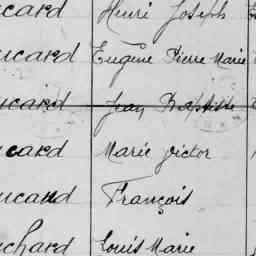 ucard Henri Joseph
ucard Eugène Pierre Marie
ucard Jean Baptiste
ucard Marie Victor
ucard François
uchard Louis Marie